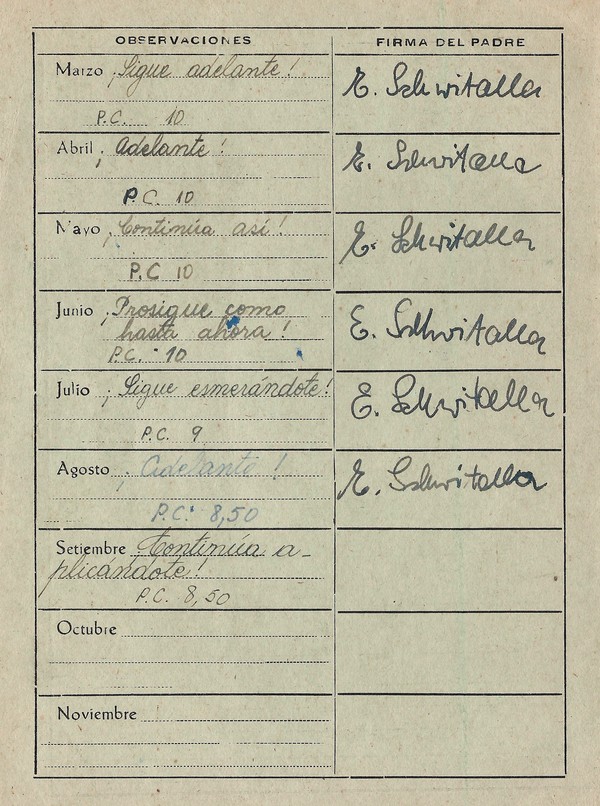 OBSERVACIONES FIRMA DEL PADRE
Marzo ¡Sigue adelante! E. Schwitalla
P.C. 10
Abril ¡Adelante! E. Schwitalla
P.C. 10
Mayo ¡Continúa así! E. Schwitalla
P.C 10
Junio ¡Prosigue como E. Schwitalla
hasta ahora!
P.C. 10
Julio ¡Sigue esmerándote! E. Schwitalla
P.C. 9
Agosto ¡Adelante! E. Schwitalla
P.C. 8,50
Setiembre ¡Continúa a-
plicándote!
P.C. 8,50
Octubre
Noviembre